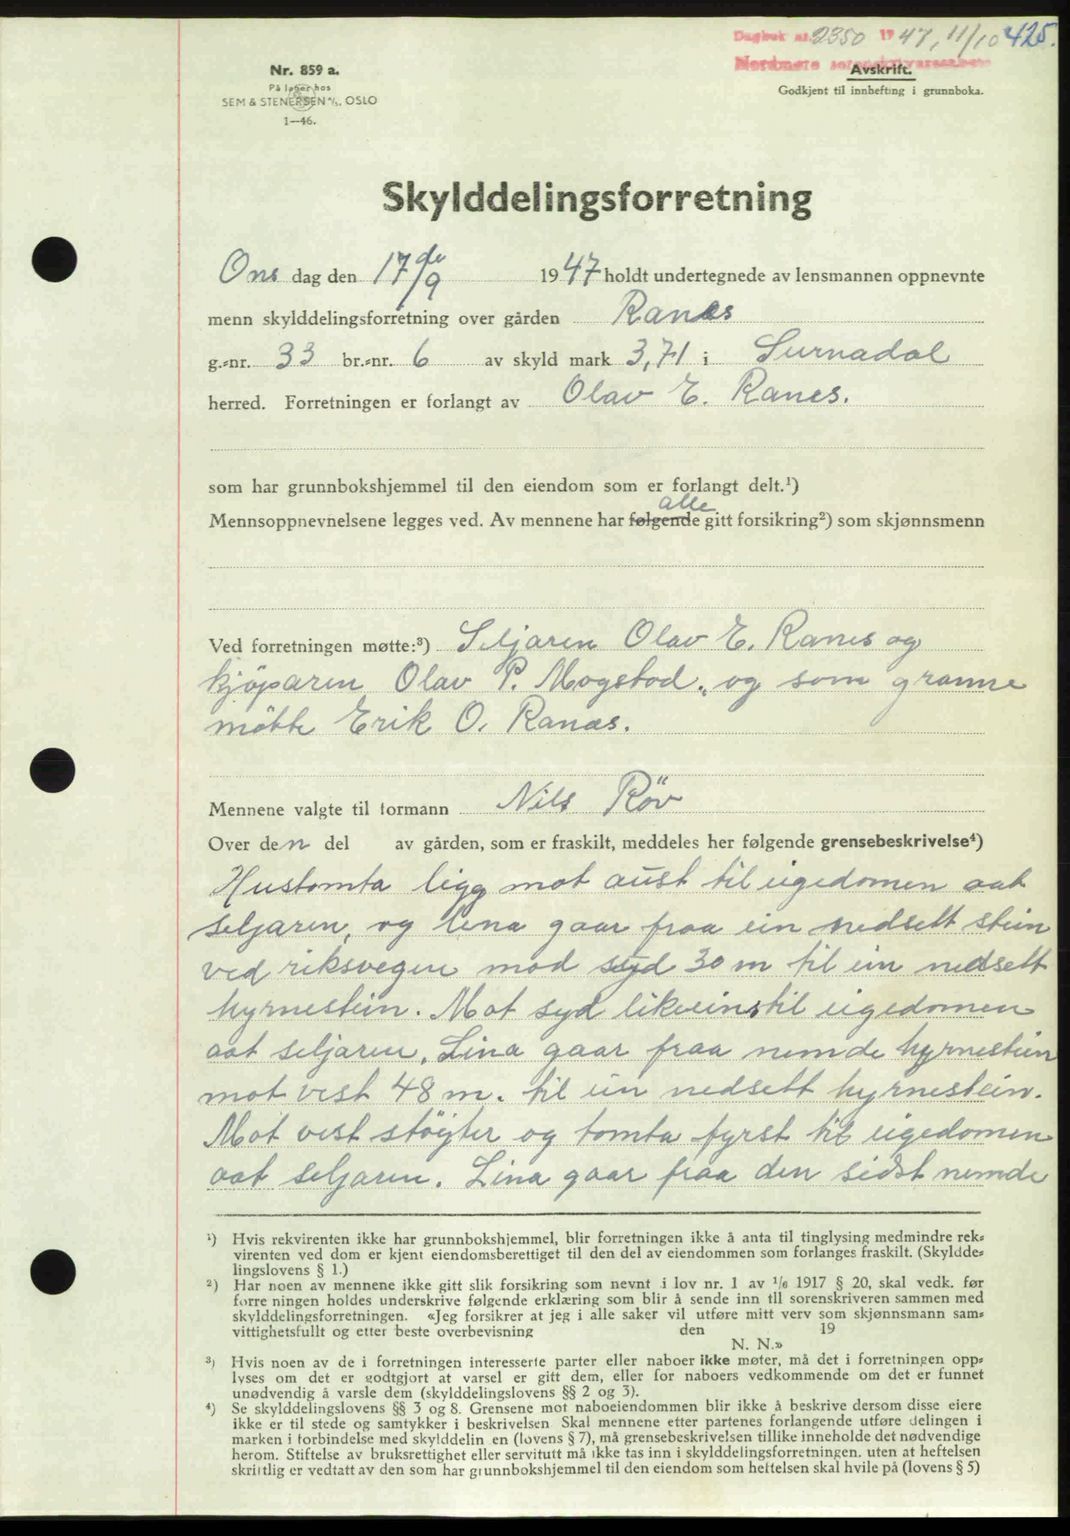 Dagbok nr. 2350 1947, 11/10 425.
Nordmøre sorenskriverembete
Nr. 859 a.
På lager hos
SEM & STENERSEN A/S, OSLO
1—46.
Avskrift.
Godkjent til innhefting i grunnboka.
Skylddelingsforretning
Ons dag den 17de/9 1947 holdt undertegnede av lensmannen oppnevnte
menn skylddelingsforretning over gården Ranes
g.-nr. 33 br.-nr. 6 av skyld mark 3,71 i Surnadal
herred. Forretningen er forlangt av Olav E. Ranes.
som har grunnbokshjemmel til den eiendom som er forlangt delt.¹)
alle
Mennsoppnevnelsene legges ved. Av mennene har følgende gitt forsikring²) som skjønnsmenn
Ved forretningen møtte:³) Seljaren Olav E. Ranes og
kjöparen Olav P. Mogstad, og som granne
mötte Erik O. Ranes.
Mennene valgte til formann Nils Röv
Over den del av gården, som er fraskilt, meddeles her følgende grensebeskrivelse⁴)
Hustomta ligg mot aust til eigedomen aat
seljaren, og lina gaar fraa ein nedsett stein
ved riksvegen mod syd 30 m til ein nedsett
hyrnestein. Mot syd likeeins til eigedomen
aat seljaren. Lina gaar fraa nemde hyrnestein
mot vest 48 m. til ein nedsett hyrnestein.
Mot vest støyter og tomta fyrst til eigedomen
aat seljaren. Lina gaar fraa den sidst nemde
¹) Hvis rekvirenten ikke har grunnbokshjemmel, blir forretningen ikke å anta til tinglysing medmindre rek-
virenten ved dom er kjent eiendomsberettiget til den del av eiendommen som forlanges fraskilt. (Skyldde-
lingslovens § 1.)
²) Har noen av mennene ikke gitt slik forsikring som nevnt i lov nr. 1 av 1/6 1917 § 20, skal vedk. før
forre ningen holdes underskrive følgende erklæring som blir å sende inn til sorenskriveren sammen med
skylddelingsforretningen. «Jeg forsikrer at jeg i alle saker vil utføre mitt verv som skjønnsmann sam-
vittighetsfullt og etter beste overbevisning den 19
N. N.»
³) Hvis noen av de i forretningen interesserte parter eller naboer ikke møter, må det i forretningen opp-
lyses om det er godtgjort at varsel er gitt dem, eller for naboers vedkommende om det er funnet
unødvendig å varsle dem (skylddelingslovens §§ 2 og 3).
⁴) Se skylddelingslovens §§ 3 og 8. Grensene mot naboeiendommen blir ikke å beskrive dersom disse eiere
ikke er til stede og samtykker i beskrivelsen Skal mennene etter partenes forlangende utføre delingen i
marken i forbindelse med skylddelin en (lovens § 7), må grensebeskrivelsen tillike inneholde det nødvendige
herom. Stiftelse av bruksrettighet eller servitutt må ikke tas inn i skylddelingsforretningen. uten at heftelsen
skriftlig er vedtatt av den som har grunnbokshjemmel til den eiendom som heftelsen skal hvile på (lovens § 5)